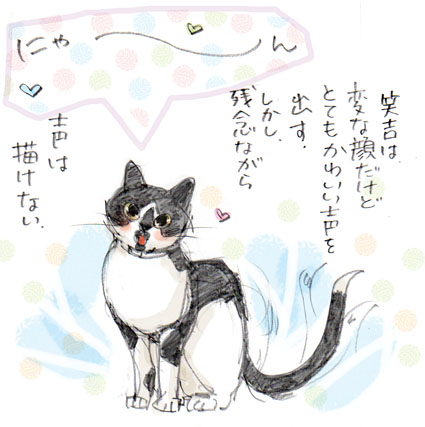 にゃ〜ん
笑吉は、
変な顔だけど
とてもかわいい声を
出す。
しかし、
残念ながら
声は
描けない。